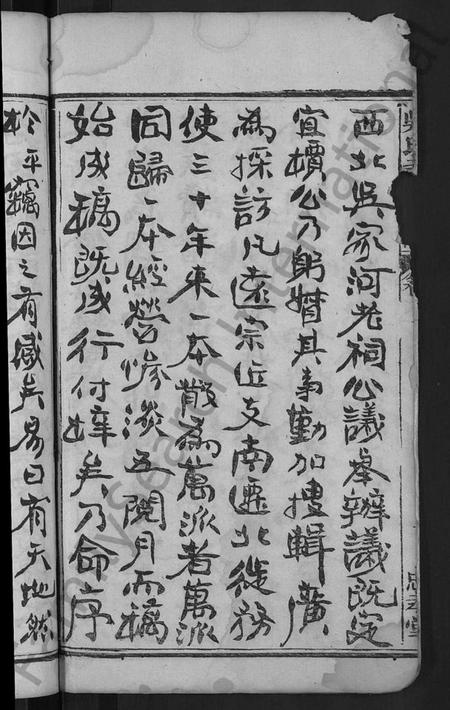 西北吳家河老祠公議舉辦議既定
宜櫝公乃躬督其事勤加搜輯廣
為採訪凡遠宗近支南遷北徙務
使三十年來一本散為萬派者萬派
同歸一本經營慘淡五閱月而稿
始成稿既成行付梓矣乃命序
於平竊因之有感矣易曰有天地然